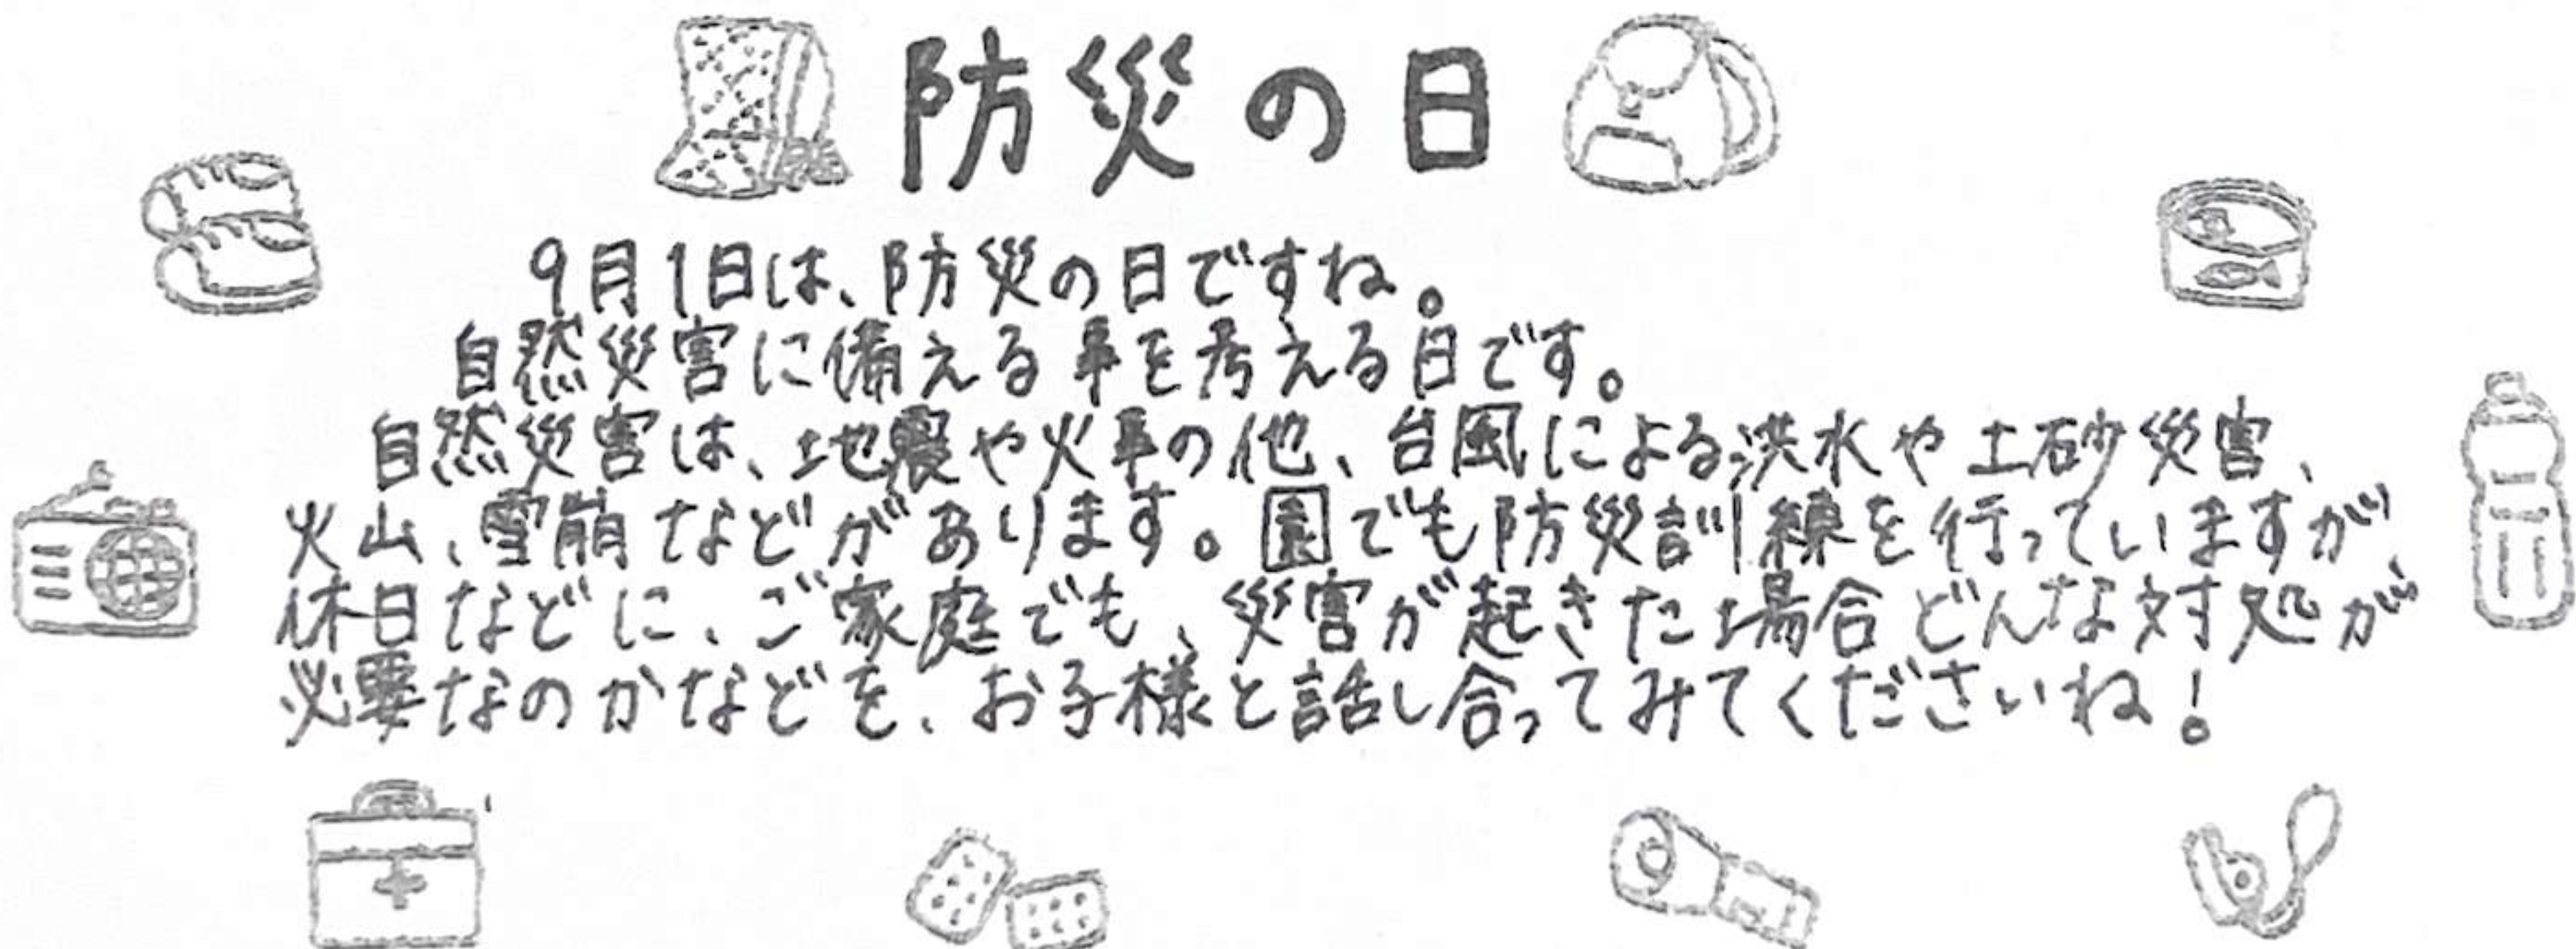 防災の日
9月1日は、防災の日ですね。
自然災害に備える事を考える日です。
自然災害は、地震や火事の他、台風による洪水や土砂災害、
火山、雪崩などがあります。園でも防災訓練を行っていますが、
休日などに、ご家庭でも、災害が起きた場合どんな対処が
必要なのかなどを、お子様と話し合ってみてくださいね!